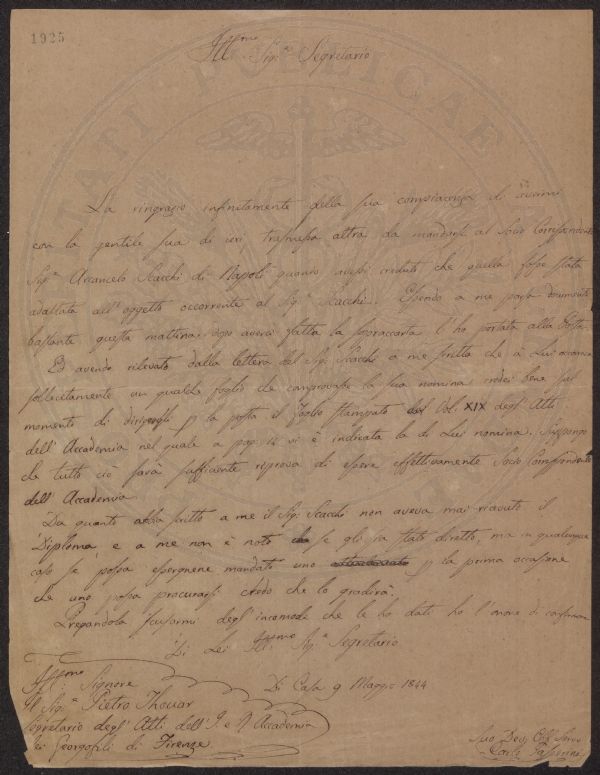 1925
Ill.mo Sig.r Segretario
La ringrazio infinitamente della sua compiacenza di avermi
con la gentile sua di ieri trasmessa altra da mandarsi al Socio Corrispondente
Sig.r Arcangelo Scacchi di Napoli quando avessi creduto che quella fosse stata
adattata all'oggetto occorrente al Sig.r Scacchi. Essendo a me parsa
bastante questa mattina dopo averci fatta la sopraccarta l'ho portata alla Posta.
Ed avendo rilevato dalla lettera del Sig. Scacchi a me scritta che a Lui occorreva
sollecitamente un qualche foglio che comprovasse la sua nomina credei bene sul
momento di dirigergli p la posta il foglio stampato del Vol. XIX degli Atti
dell'Accademia nel quale a pag. 14 vi è indicata la di Lui nomina. Suppongo
che tutto ciò sarà sufficiente riprova di essere effettivamente Socio Corrispondente
dell'Accademia.
Da quanto abba scritto a me il Sig. Scacchi non aveva mai ricevuto il
Diploma, e a me non è noto se gli sia stato diretto, ma in qualunque
caso se possa essergnene mandato uno p la prima occasione
che uno possa procurarsi credo che lo gradirà.
Pregandola scusarmi degl'incomodi che le ho dati ho l'onore di confermarmi
Di Lei Ill.mo Sig.r Segretario
Di Casa 9 Maggio 1844
Ill.mo Signore
Il Sig.r Pietro Thouar
Segretario degl'Atti dell'I. e R. Accademia
dei Georgofili di Firenze
Suo Dev. Obb. Servo
Carlo Passerini
STATI PUBLICAE